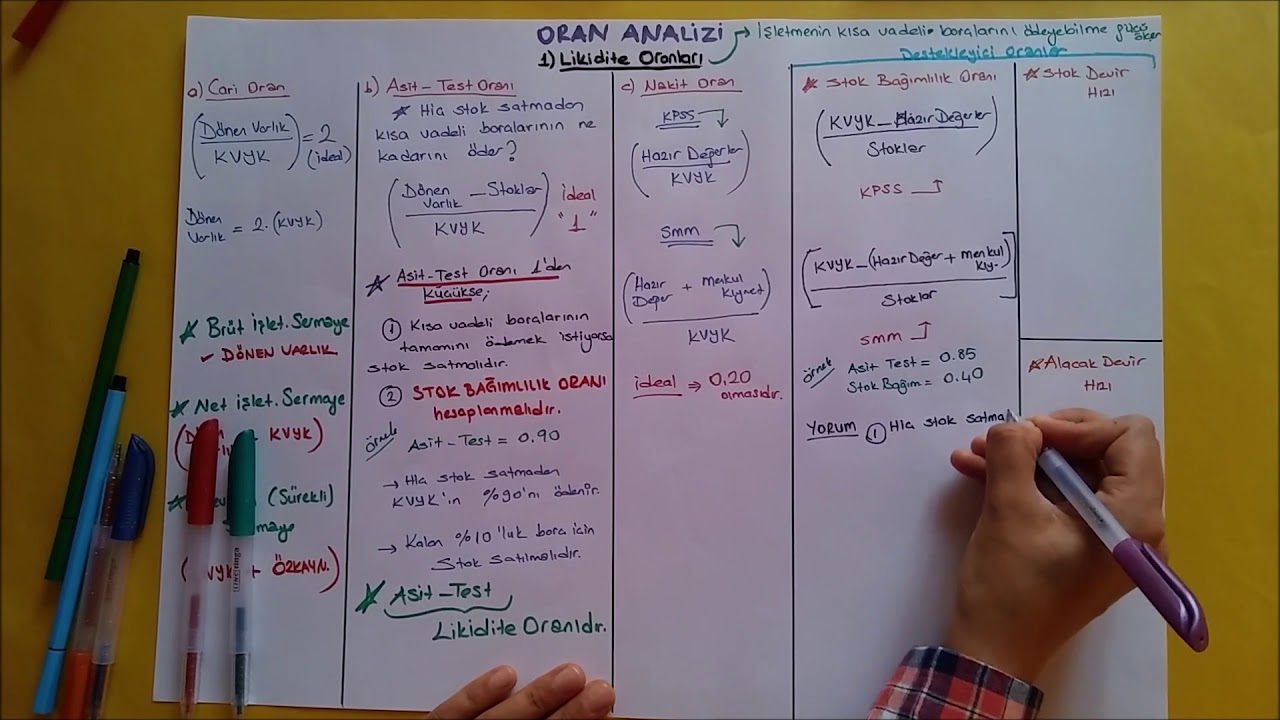 ORAN ANALİZİ
1) Likidite Oranları
→ İşletmenin kısa vadeli borçlarını ödeyebilme gücü
Destekleyici Oranlar
a) Cari Oran
Dönen Varlık
KVYK
= 2
(ideal)
Dönen
Varlık = 2. (KVYK)
★ Brüt İşlet. Sermaye
✓ DÖNEN VARLIK
★ Net işlet. Sermaye
KVYK)
(Sürekli)
+ ÖZKAYN.)
b) Asit-Test Oranı
★ Hiç stok satmadan
kısa vadeli borçlarının ne
kadarını öder?
Dönen Varlık – Stoklar
KVYK
ideal
"1"
★ Asit-Test Oranı 1'den
küçükse;
① Kısa vadeli borçlarının
tamamını ödemek istiyorsa
stok satmalıdır.
② STOK BAĞIMLILIK ORANI
hesaplanmalıdır.
örnek Asit-Test = 0,90
→ Hiç stok satmadan
KVYK'ın %90'nı ödenir.
→ Kalan %10'luk borç için
Stok satılmalıdır.
★ Asit-Test
Likidite Oranıdır.
c) Nakit Oran
KPSS
Hazır Değerler
KVYK
SMM
Hazır Değer + Menkul Kıymet
KVYK
ideal ⇒ 0,20
olmasıdır.
★ Stok Bağımlılık Oranı
KVYK – Hazır Değerler
Stoklar
KPSS
[KVYK – (Hazır Değer + menkul kıy.)]
Stoklar
SMM
örnek Asit Test = 0.85
Stok Bağım = 0.40
YORUM ① Hiç stok satma
★ Stok Devir
Hızı
★ Alacak Devir
Hızı